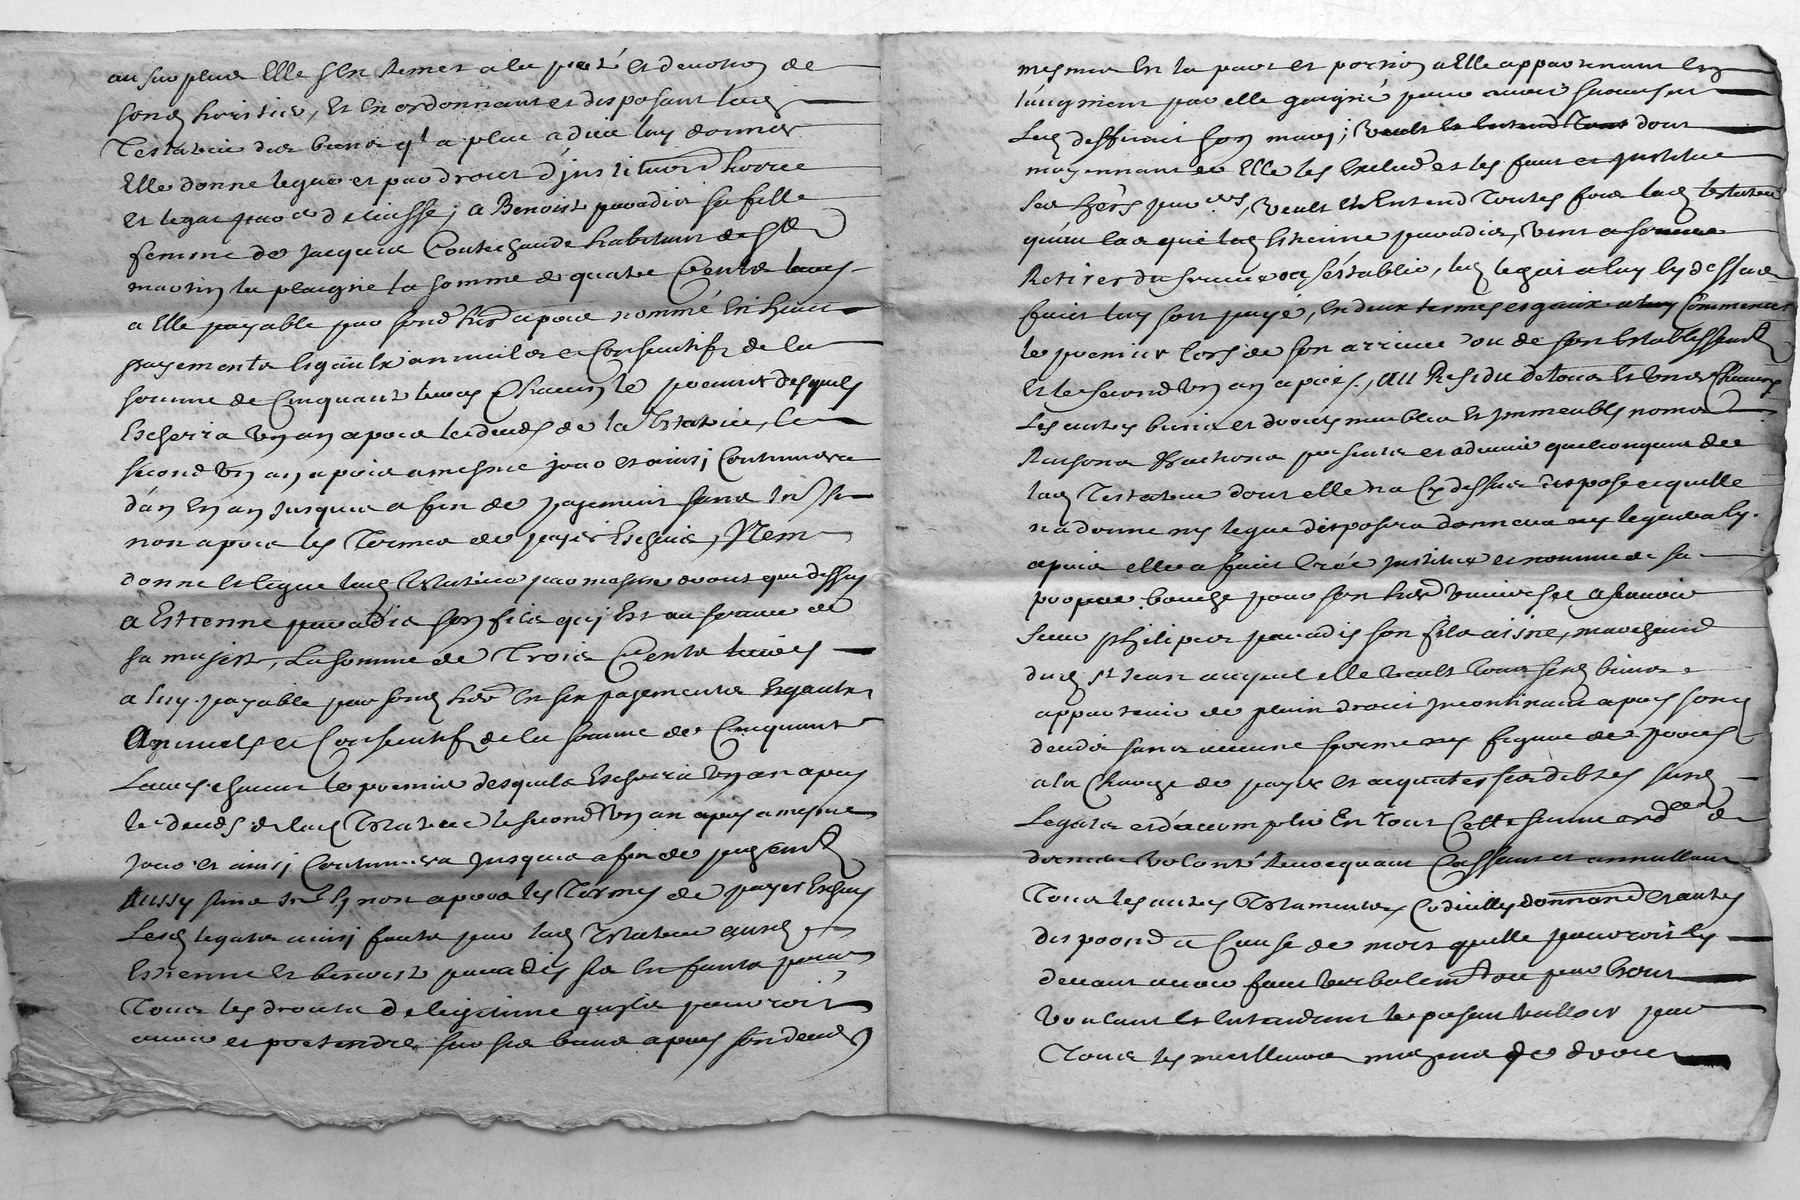 au surplus Elle s'En Remet a la pieté et devotion de
sond heritier, Et En ordonnant et disposant lad
Testatrice des biens ql a pleu a dieu luy donner
Elle donne legue et par droict d'jnstitution
et legat delaisse a Benoist paradis sa fille
femme de jacques habitant de St
martin la plaigne la somme de quatre Cents livres
a Elle payable par sond herr apres nommé En huict
payements Esgaulx annuels et Consecutifs de la
somme de Cinquante livres Chacun le premier desquels
Eschera Un an apres le deceds de la Testatrice, le
second Un an apres a mesme jour et ainsi Continuera
d'an En an jusques a fin de payement sans
non apres les Termes de payer Escheus, Jtem
donne et legue lad Testatrice par mesme droict que dessus
a Estienne paradis son fils quj Est au service de
sa majesté, La somme de Trois Cents livres
a luy payable par sond herr En six payements Esgaulx
Annuels et Consecutifs de la somme de Cinquante
Livres chacun le premier desquels Eschera Un an apres
le deceds de lad Testatrice le second Un an apres a mesme
jour et ainsi Continuera jusques a fin de payement
Aussy sans non apres les Termes de payer Escheus
Lesd legats ainsi faits par lad Testatrice ausd
Estienne et benoist paradis ses Enfants pour
Tous les droits de legitime quils pourroient
avoir et pretendre sur ses biens apres son deceds
mesmes En la part et portion a Elle appartenant En
l'augment par elle gaigné pour avoir survescu
Led deffunct son mary; veult Et Entend Tout dont
moyennant ce Elle les Exclud et les faict et jnstitue
ses hers veult Et Entend Toutes fois lad testatrice
qu'au cas que led Estienne paradis, vint a
Retirer du service ou s'establir, led legat a luy cy dessus
faict luy soit payé, En deux termes esgaux
le premier lors de son arrivee ou de son Establissement
Et le second Un an apres, Au Residu de Tous Et Uns Chacuns
Les autres biens et droicts meubles Et jmmeubles noms
Raisons & actions presents et advenir quelconques de
lad Testatrice dont elle n'a Cy dessus dispose et quelle
n'a donne ny legue disposera donnera ny leguera cy
apres elle a faict Créé jnstitué et nomme de sa
propre bouche pour son herr Universel a scavoir
sieur philipes paradis son fils aisne, marchand
dud St Jean auquel elle veult Tous sesd biens
appartenir de plein droict jncontinant apres sond
deceds sans aucune forme ny figure de proces
a la Charge de payer et acquiter ses debtes susd
Legats et d'accomplir En Tout Cette sienne ordce de
derniere volonté Revocquant Cassant et annullant
Tous les autres Testaments, Codicilles donnaons Et autres
disposons a Cause de mort quelle pourroit cy
devant avoir faict verbalement ou par escrit
voulant Et Entendant le present valloir par
Tous les meilleurs moyens de droict